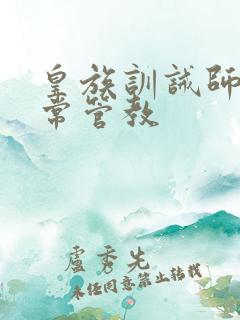 皇族訓誡師
常管教
盧秀先
未经同意禁止转载